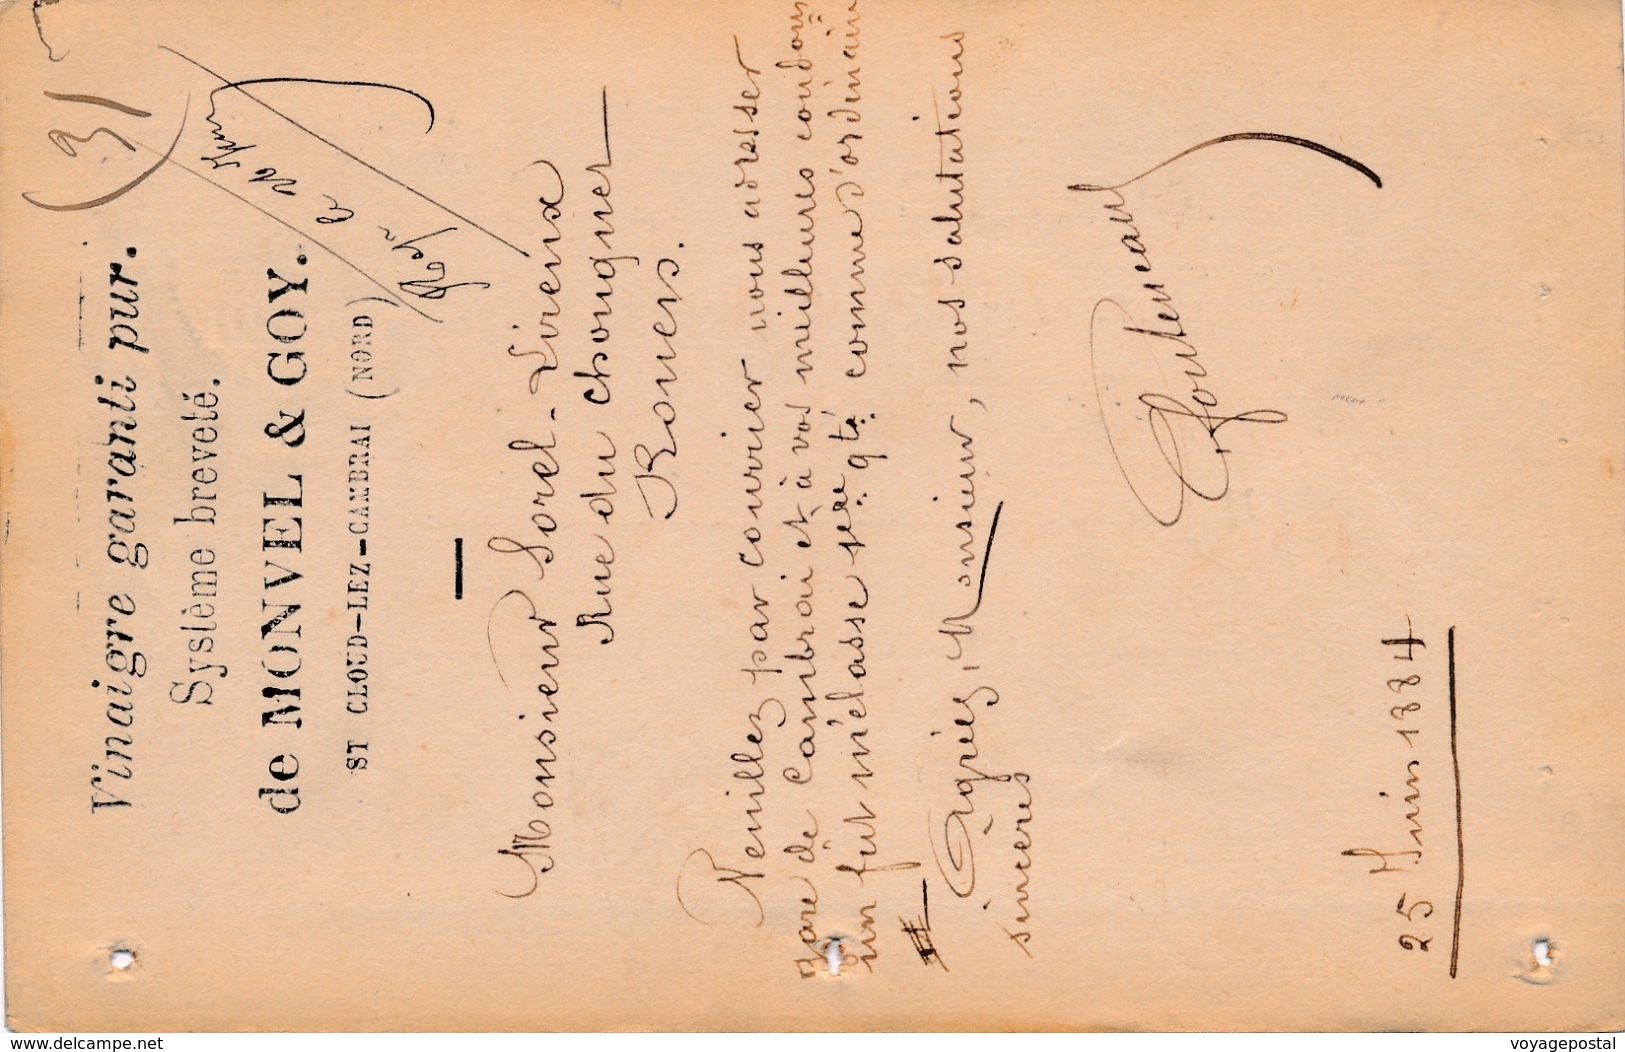 (31
Vinaigre garanti pur.
Système breveté.
de MONVEL & GOY.
ST CLOUD-LEZ-CAMBRAI (NORD)
Monsieur Sorel-
Rue du chouquet
Rouen.
Veuillez par courrier nous adresser
gare de Cambrai et à vos meilleures condons
un fût mélasse qté comme d'ordinaire
Agréez, Monsieur, nos salutations
sincères
25 Juin 1884
www.delcampe.net
voyagepostal